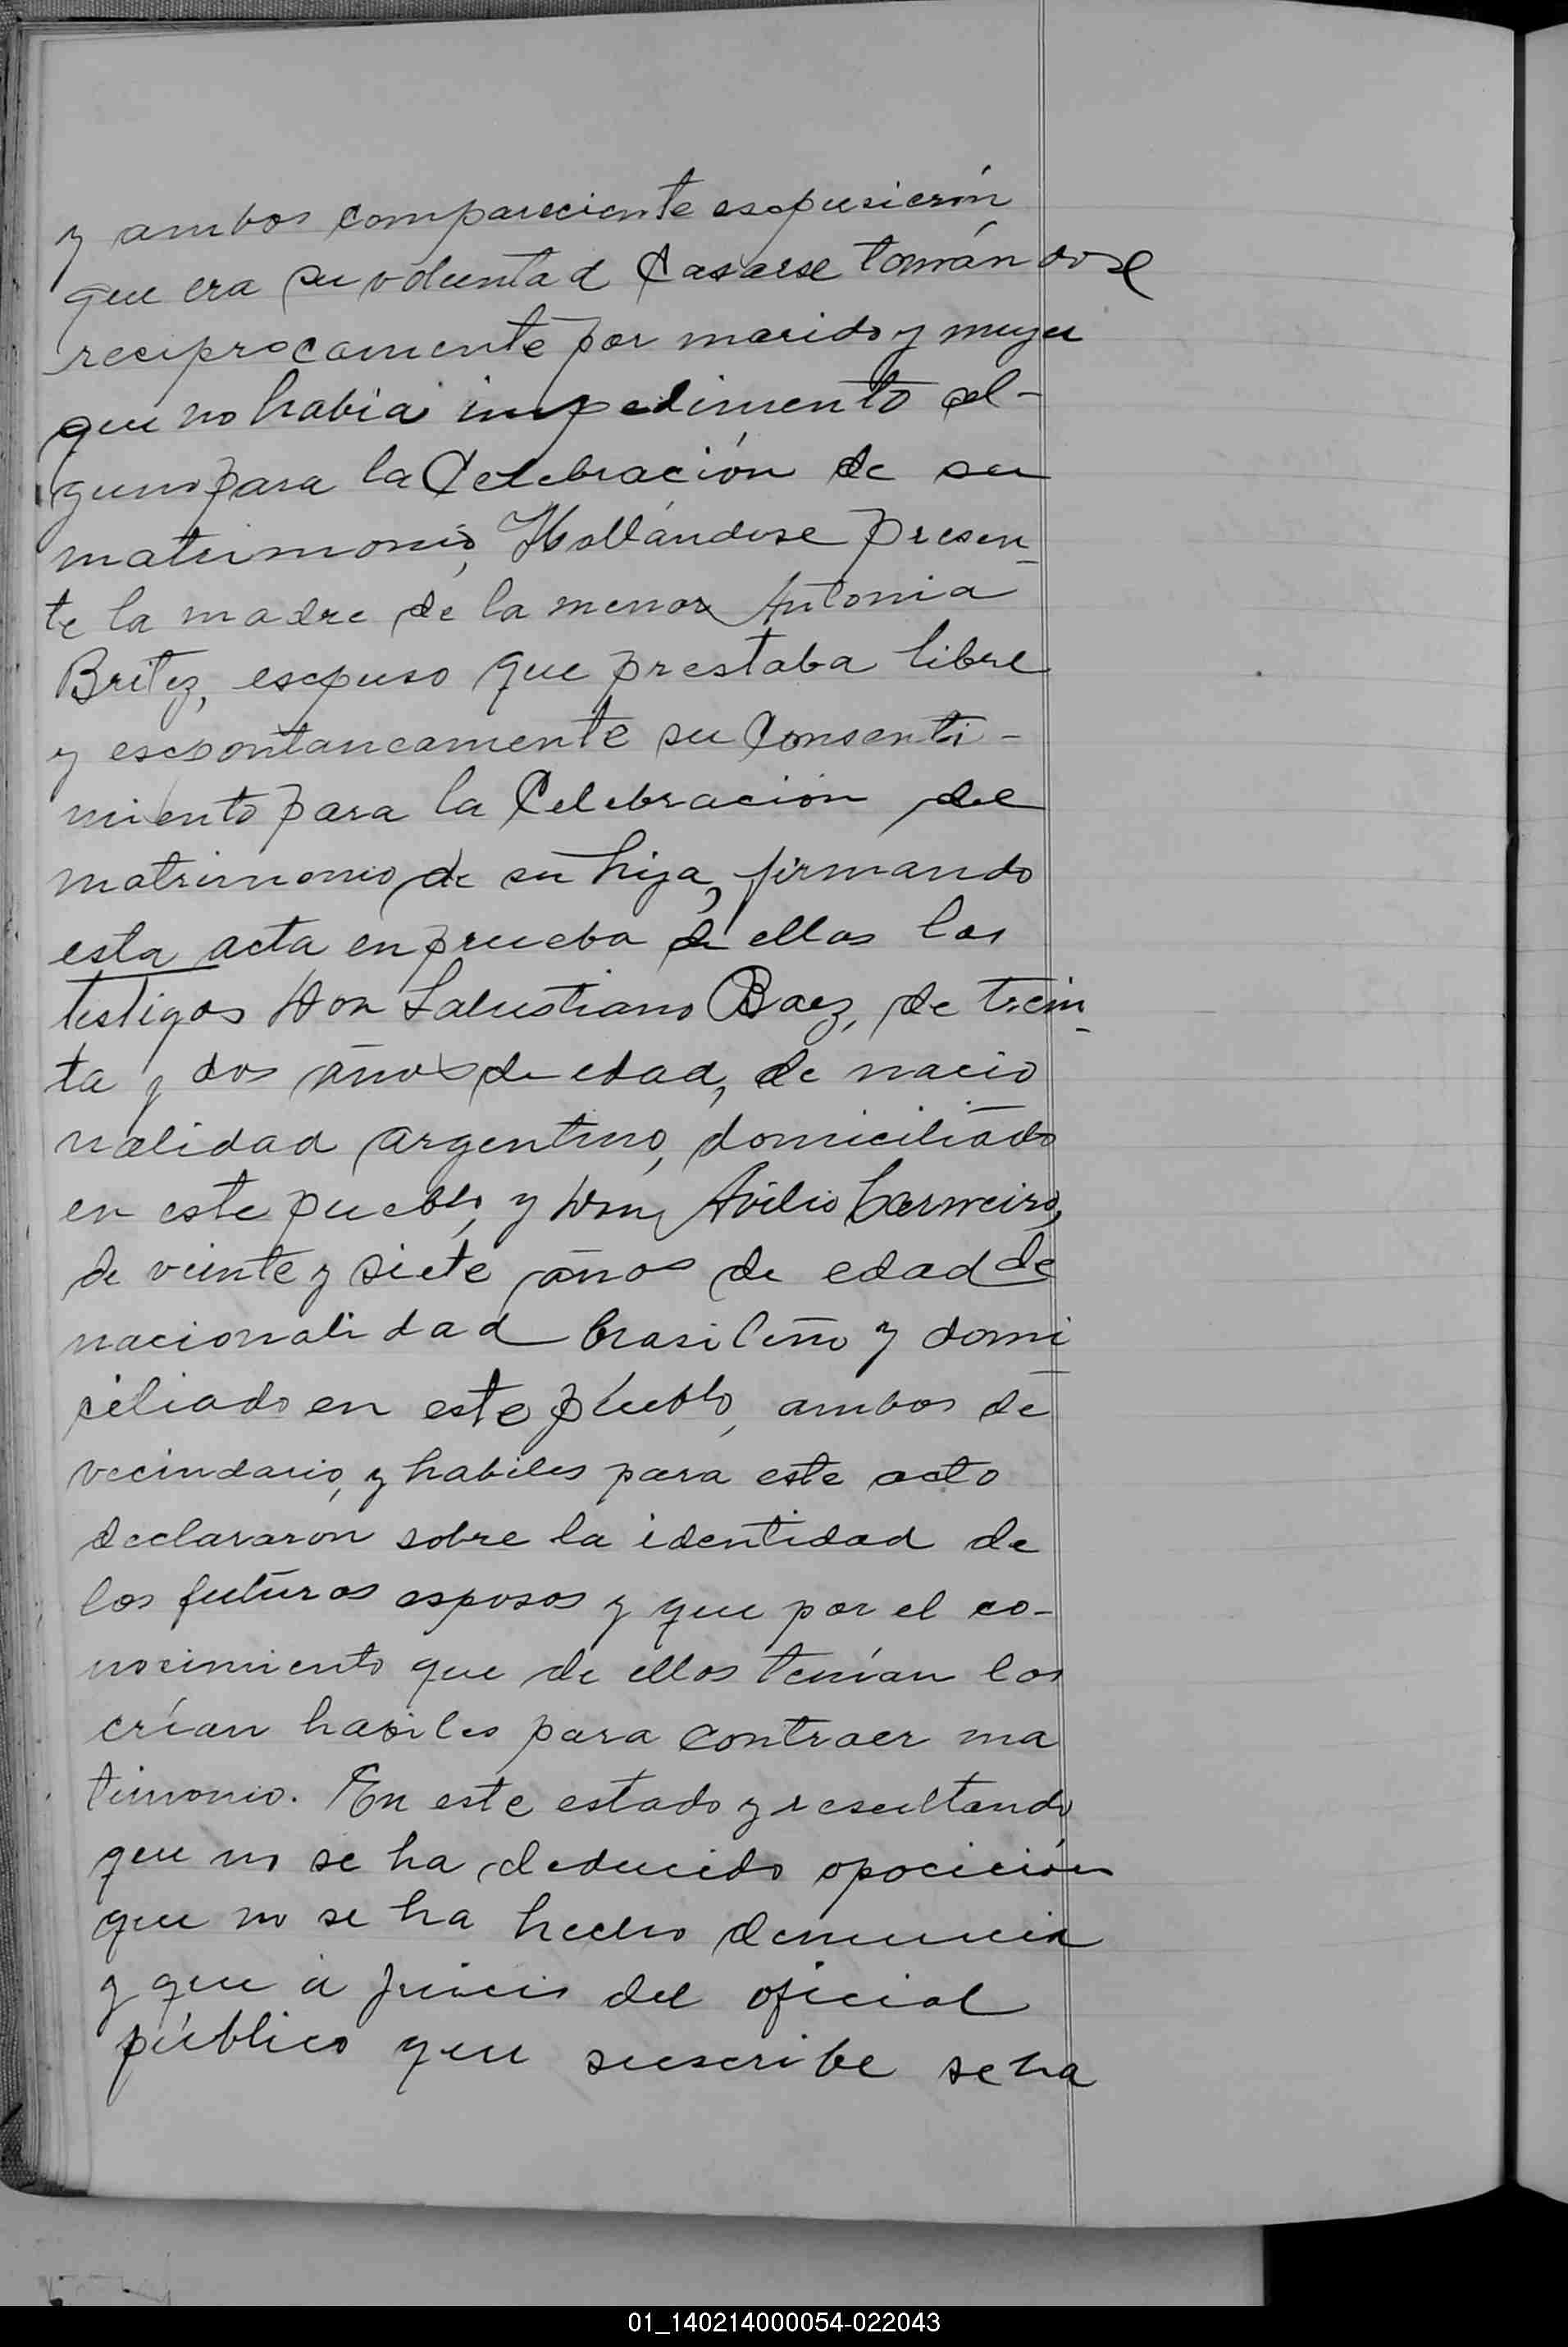 y ambos compareciente esopusierón
que era su voluntad Casarse tomándose
reciprocamente por marido y mujer
que no había impedimento al-
guno para la Celebración de su
matrimonio, Hallándose presen-
te la madre de la menor Antonia
Britez, escpuso que prestaba libre
y escpontaneamente su Consenti-
miento para la Celebración del
matrimonio de su hija, firmando
esta acta en prueba de ellos los
testigos Don Salustiano Baez, de trein-
ta y dos años de edad, de nacio
nalidad argentino, domiciliado
en este pueblo, y Don Avilio Carneiro,
de veinte y siete años de edad de
nacionalidad brasileño y domi
ciliado en este pueblo, ambos de
vecindario, y habiles para este acto
declararon sobre la identidad de
los futuros esposos y que por el co-
nocimiento que de ellos tenían los
crían habiles para contraer ma
timonio. En este estado y resultando
que no se ha deducido opocición
que no se ha hecho denuncia
y que á juicio del oficial
público que suscribe se ha
01_140214000054-022043